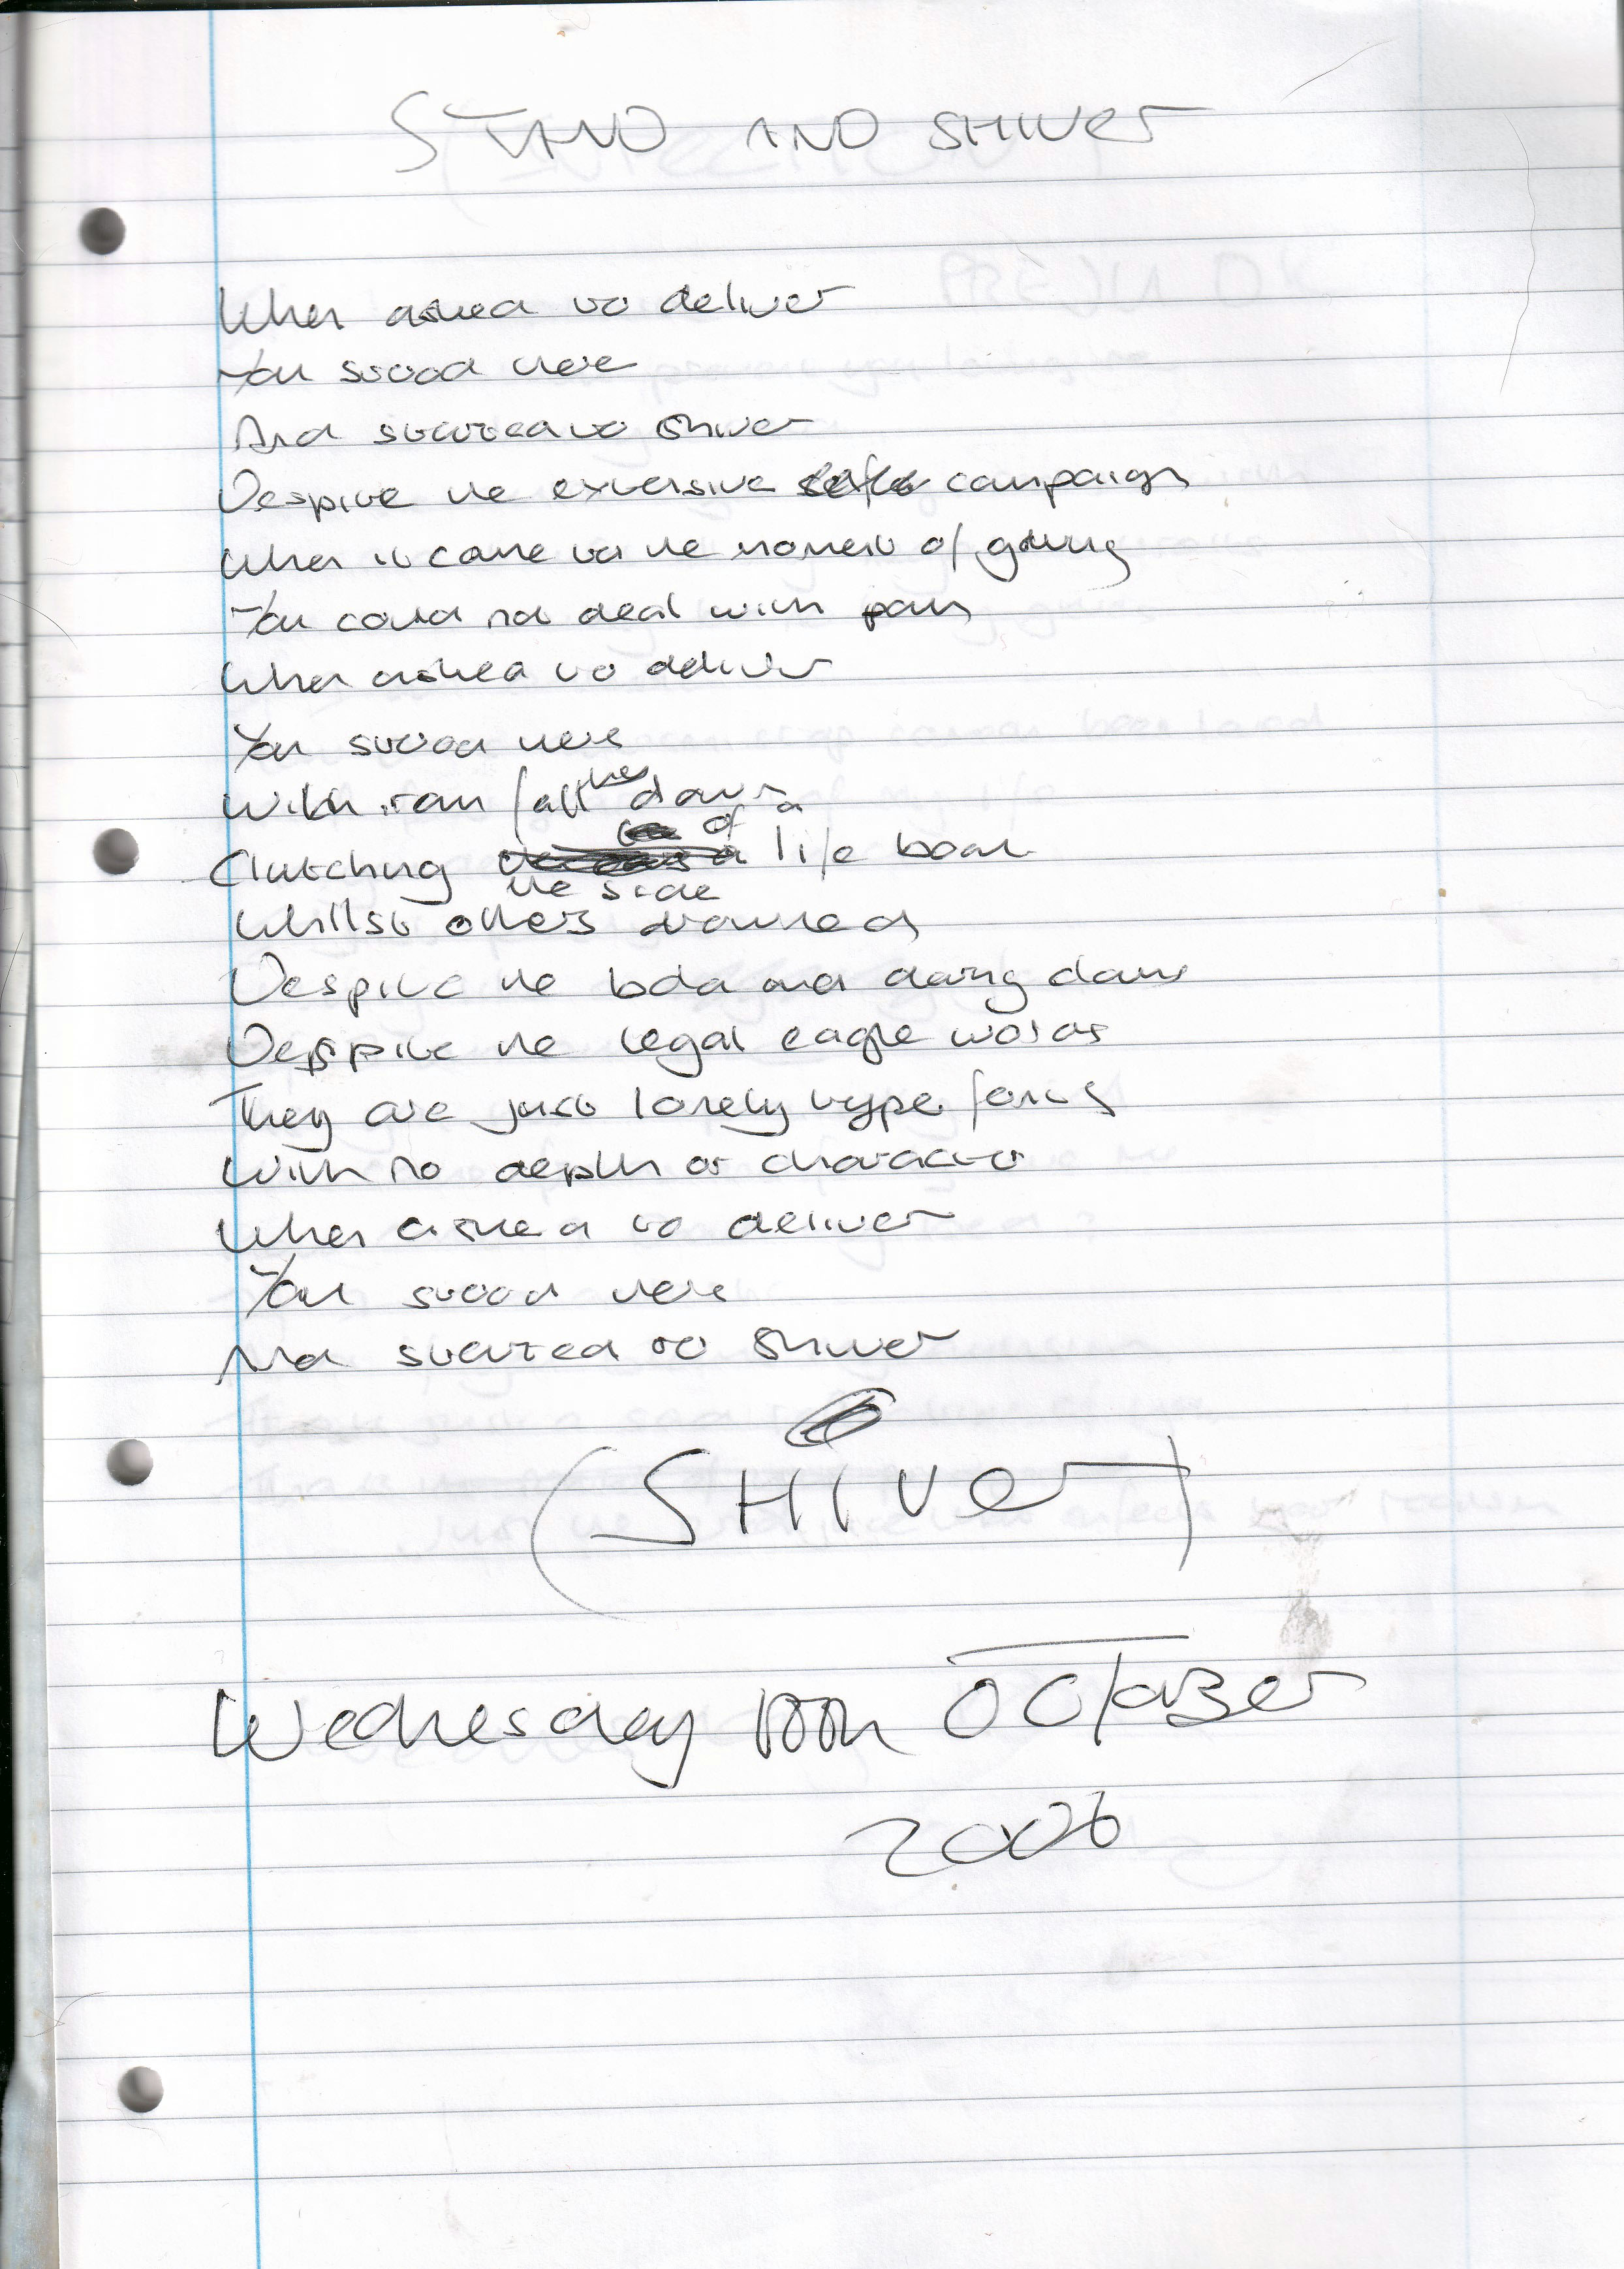 STAND AND SHIVER
When asked to deliver
You stood there
And started to shiver
Despite the extensive campaign
When it came to the moment of going
You could not deal with pain
When asked to deliver
You stood there
With ran father down
Clutching the side of a life boat
Whillst others drowned
Despite the bold and daring
Despite the legal eagle words
They are just lonely type fonts
With no depth or character
When asked to deliver
You stood there
And started to shiver
(SHIVer)
Wednesday October
2006